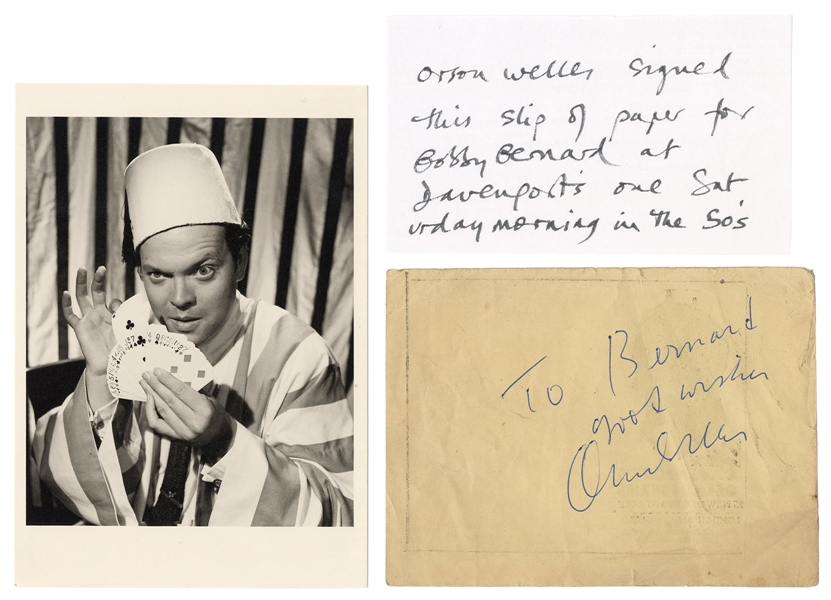 Orson Welles signed
this slip of paper for
Bobby Bernard at
Davenport's one Sat
urday morning in the 50's
To Bernard
good wishes
Orson Welles